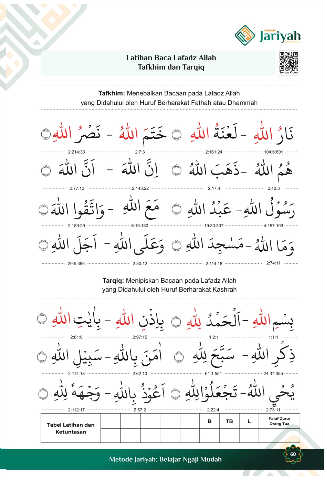 Jariyah
Latihan Baca Lafadz Allah
Tafkhim dan Tarqiq
Tafkhim: Menebalkan Bacaan pada Lafadz Allah
yang Didahului oleh Huruf Berharakat Fathah atau Dhammah
نَارُ اللّٰهِ - لَعْنَةُ اللّٰهِ ۞ خَتَمَ اللّٰهُ - نَصْرُ اللّٰهِ
هُمُ اللّٰهُ - ذَهَبَ اللّٰهُ ۞ اِنَّ اللّٰهَ - اَنَّ اللّٰهَ
رَسُوْلُ اللّٰهِ - عَبْدُ اللّٰهِ ۞ مَعَ اللّٰهِ - وَاتَّقُوا اللّٰهَ
وَمَا اللّٰهُ - مَسٰجِدَ اللّٰهِ ۞ وَعَلَى اللّٰهِ - اَجَلَ اللّٰهِ
Tarqiq: Menipiskan Bacaan pada Lafadz Allah
yang Didahului oleh Huruf Berharakat Kashrah
بِسْمِ اللّٰهِ - اَلْحَمْدُ لِلّٰهِ ۞ بِاِذْنِ اللّٰهِ - بِاٰيٰتِ اللّٰهِ
ذِكْرِ اللّٰهِ - سَبَّحَ لِلّٰهِ ۞ اٰمَنَ بِاللّٰهِ - سَبِيْلِ اللّٰهِ
يُحْيِ اللّٰهُ - تَجْعَلُوْا لِلّٰهِ ۞ اَعُوْذُ بِاللّٰهِ - وَجْهَهٗ لِلّٰهِ
Tabel Latihan dan Ketuntasan
B TB L
Paraf Guru/ Orang Tua
Metode Jariyah: Belajar Ngaji Mudah
60